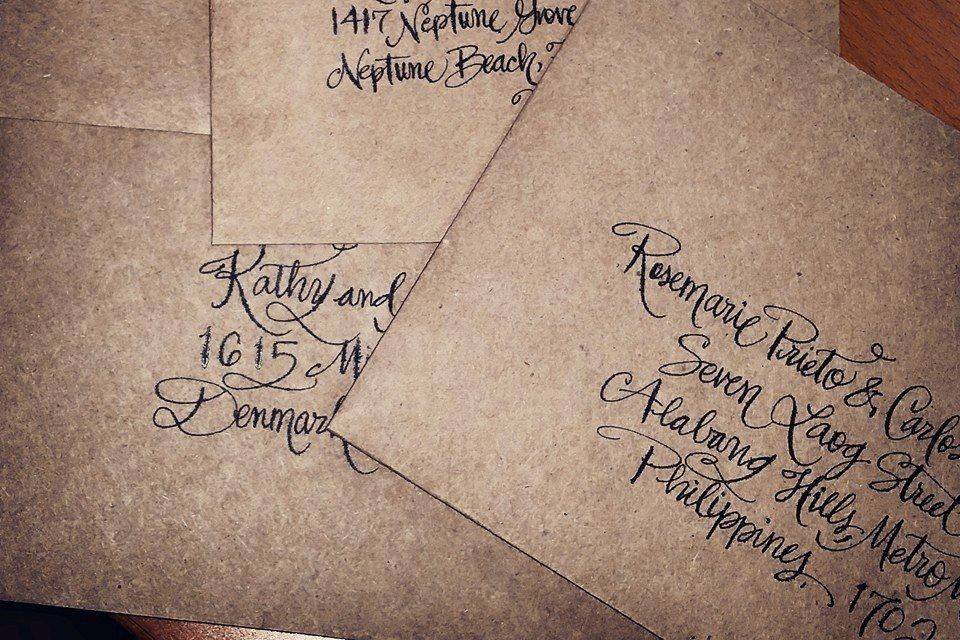 1417 Neptune Grove
Neptune Beach,
Kathy and
1615
Denmar
Rosemarie Prieto & Carlos
Seven Laog Street
Alabang Hills Metro
Philippines, 170